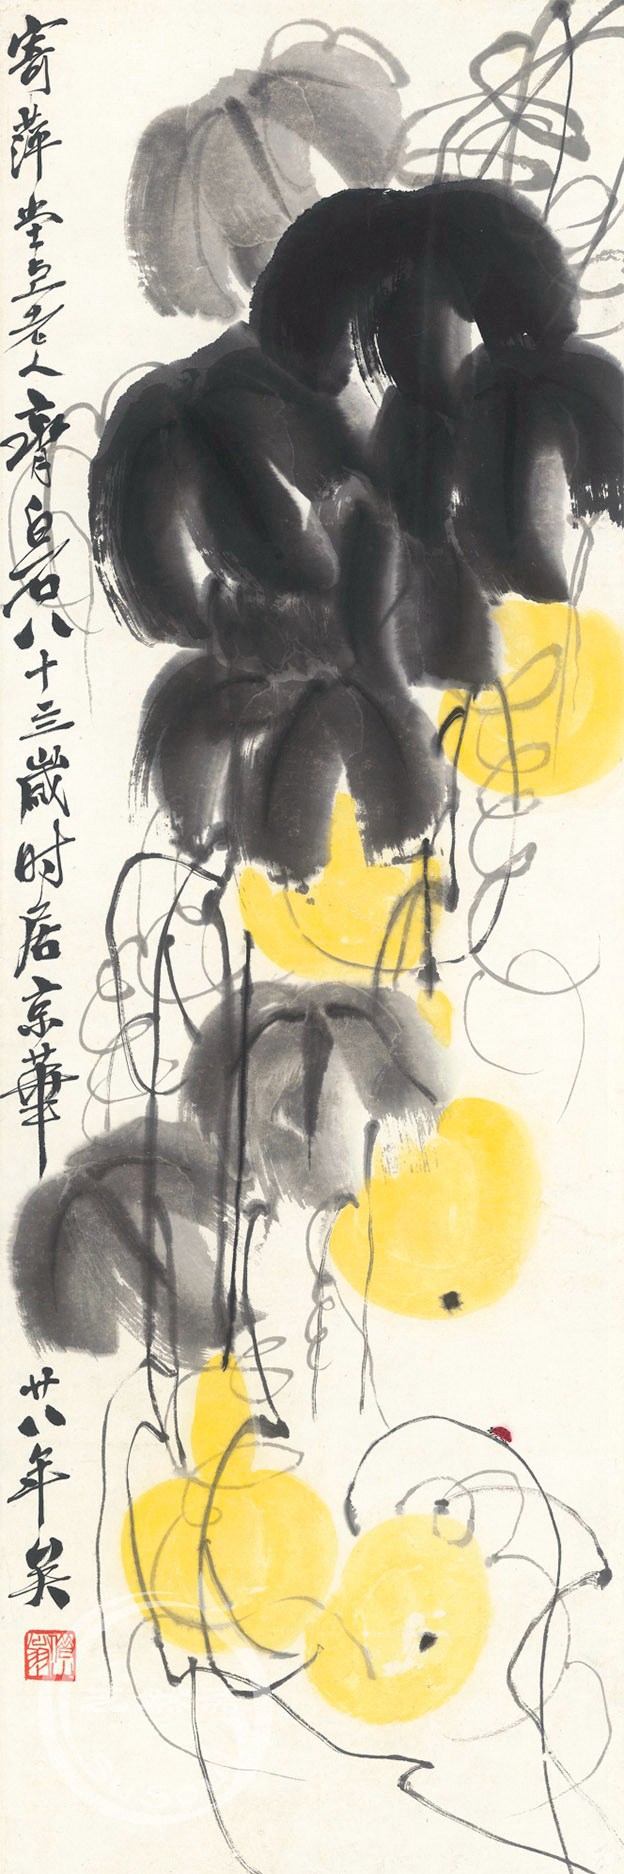 寄萍堂上老人齊白石八十三歲时居京華廿八年矣